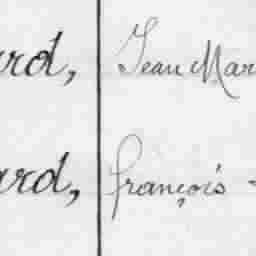 ard, Jean Mar
ard, François